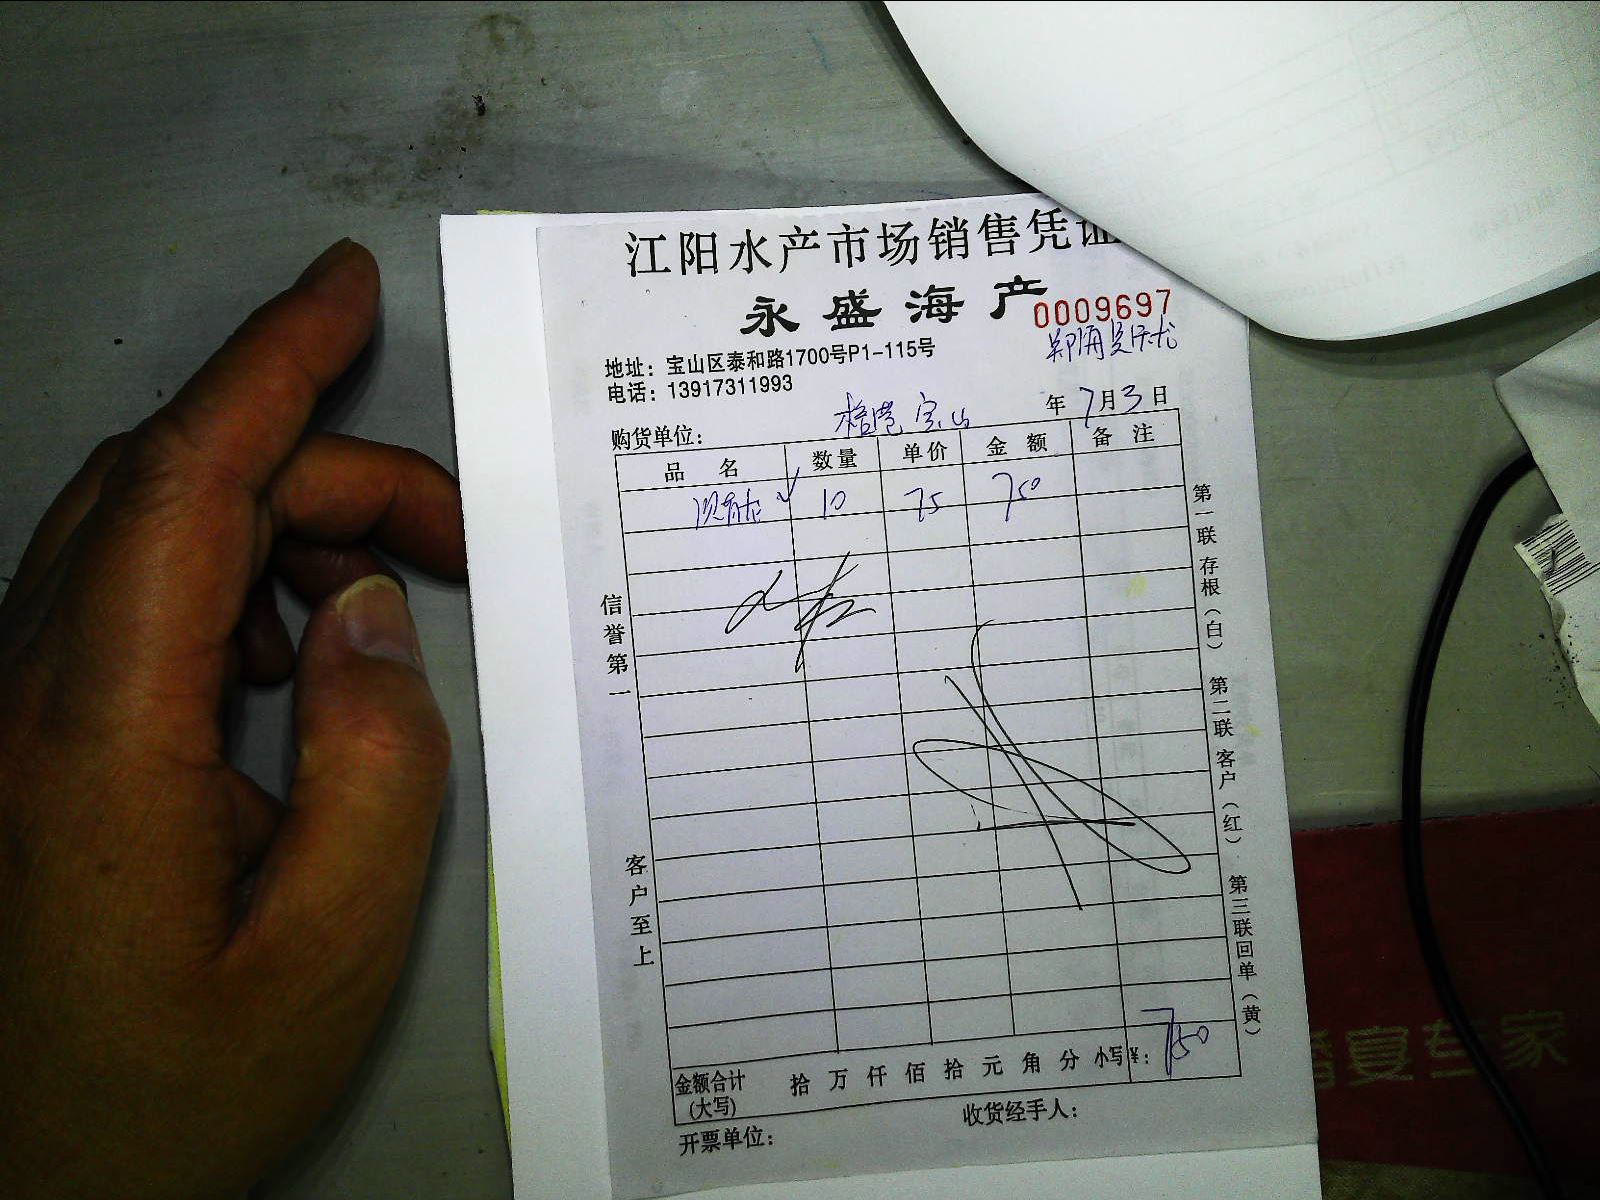 江阳水产市场销售凭证
永盛海产
0009697
地址：宝山区泰和路1700号P1-115号
电话：13917311993
年 7月3日
购货单位： 宝山
品 名 数量 单价 金 额 备 注
10 75 750
信誉第一
客户至上
第一联 存根（白） 第二联 客户（红） 第三联回单（黄）
金额合计 拾 万 仟 佰 拾 元 角 分 小写¥：750
(大写)
开票单位： 收货经手人：
婚宴专家